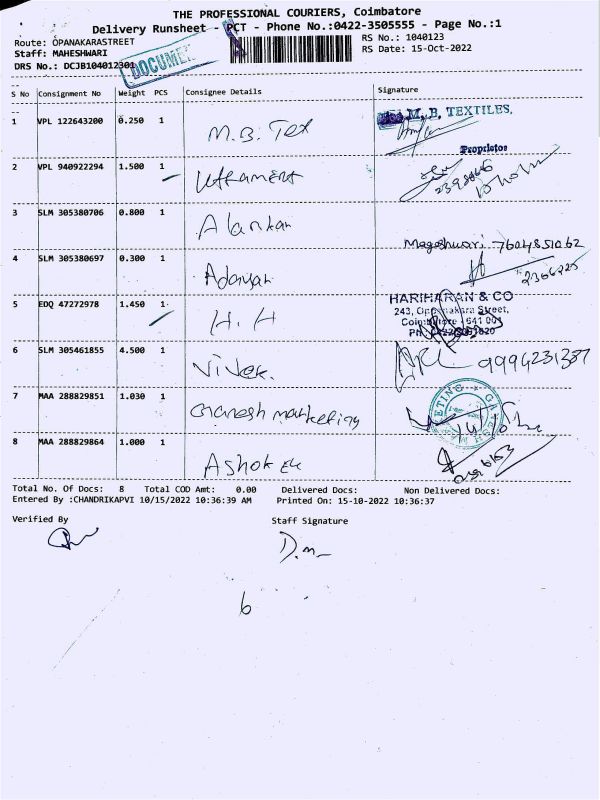 THE PROFESSIONAL COURIERS, Coimbatore
Delivery Runsheet - PCT - Phone No.:0422-3505555 - Page No.:1
Route: OPANAKARASTREET
RS No.: 1040123
Staff: MAHESHWARI
RS Date: 15-Oct-2022
DRS No.: DCJB104012301
DOCUMENT
S No Consignment No Weight PCS Consignee Details Signature
1 VPL 122643200 0.250 1 M.B. Tex M. B. TEXTILES,
Proprietor
2 VPL 940922294 1.500 1
3 SLM 305380706 0.800 1 Alankar Mageshwari 7604851062
4 SLM 305380697 0.300 1 2366225
5 EDQ 47272978 1.450 1 H.H HARIHARAN & CO
243, Oppanakara Street,
Coimbatore - 641 001
6 SLM 305461855 4.500 1 Vivek. 9994231387
7 MAA 288829851 1.030 1 Ganesh marketing
8 MAA 288829864 1.000 1 Ashok
Total No. Of Docs: 8 Total COD Amt: 0.00 Delivered Docs: Non Delivered Docs:
Entered By :CHANDRIKAPVI 10/15/2022 10:36:39 AM Printed On: 15-10-2022 10:36:37
Verified By Staff Signature
6